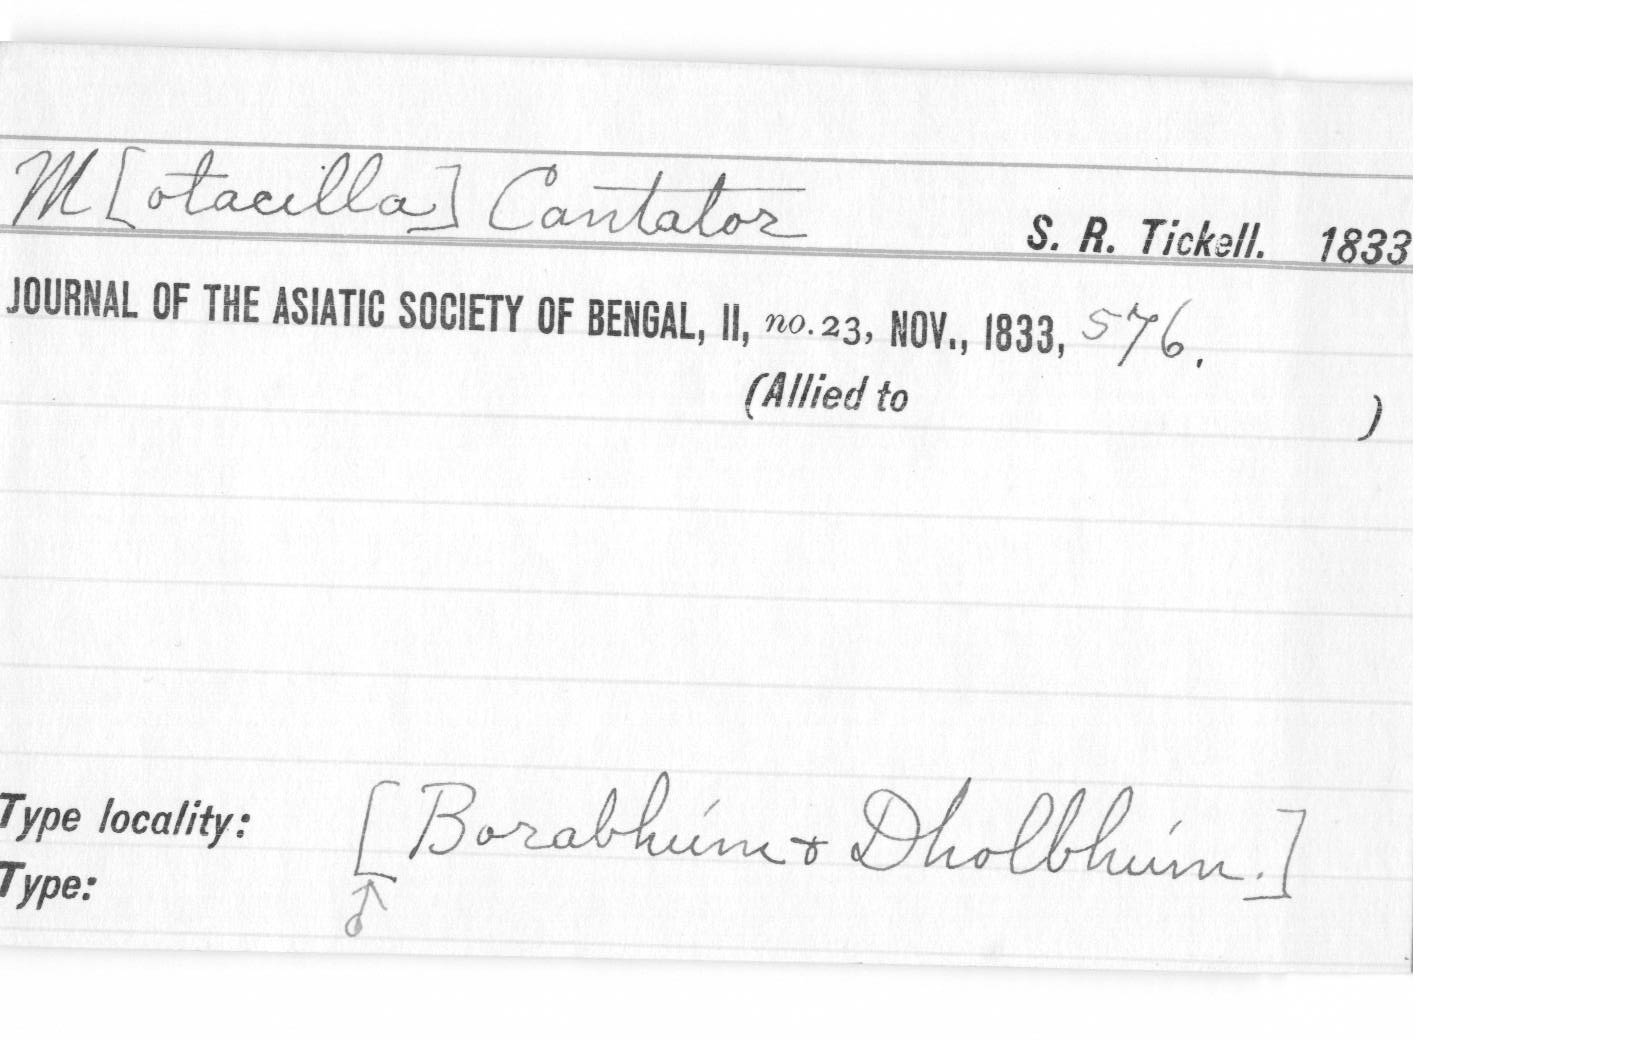 M[otacilla] Cantator S. R. Tickell. 1833
JOURNAL OF THE ASIATIC SOCIETY OF BENGAL, II, no. 23, NOV., 1833, 576.
(Allied to )
Type locality: [Borabhúm + Dholbhúm.]
Type: ♂